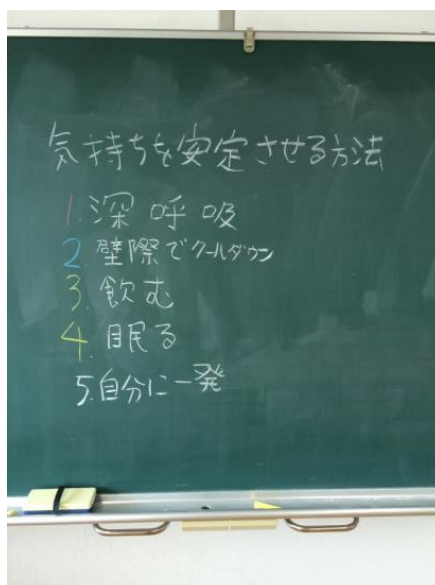 気持ちを安定させる方法
1.深呼吸
2.壁際でクールダウン
3.飲む
4.眠る
5.自分に一発